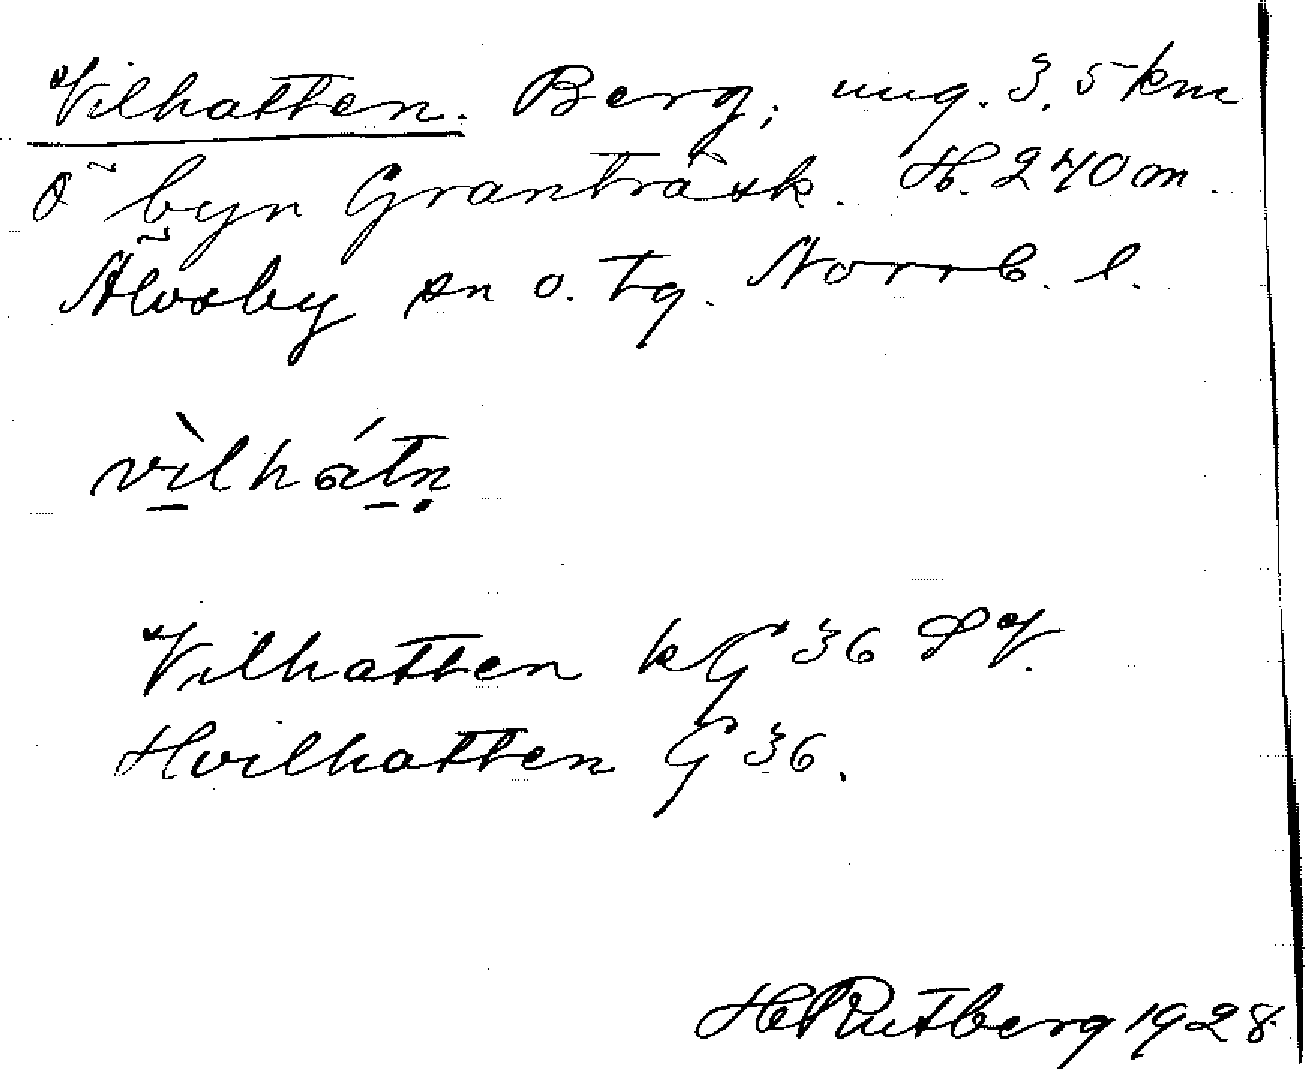 Vilhatten. Berg, ung. 3,5 km
Ö byn Granträsk. H. 270 m.
Älvsby sn o. tg. Norrb. l.
vìlhátn̥
Vilhatten kG 36 SV.
Hvilhatten G 36.
H Rutberg 1928